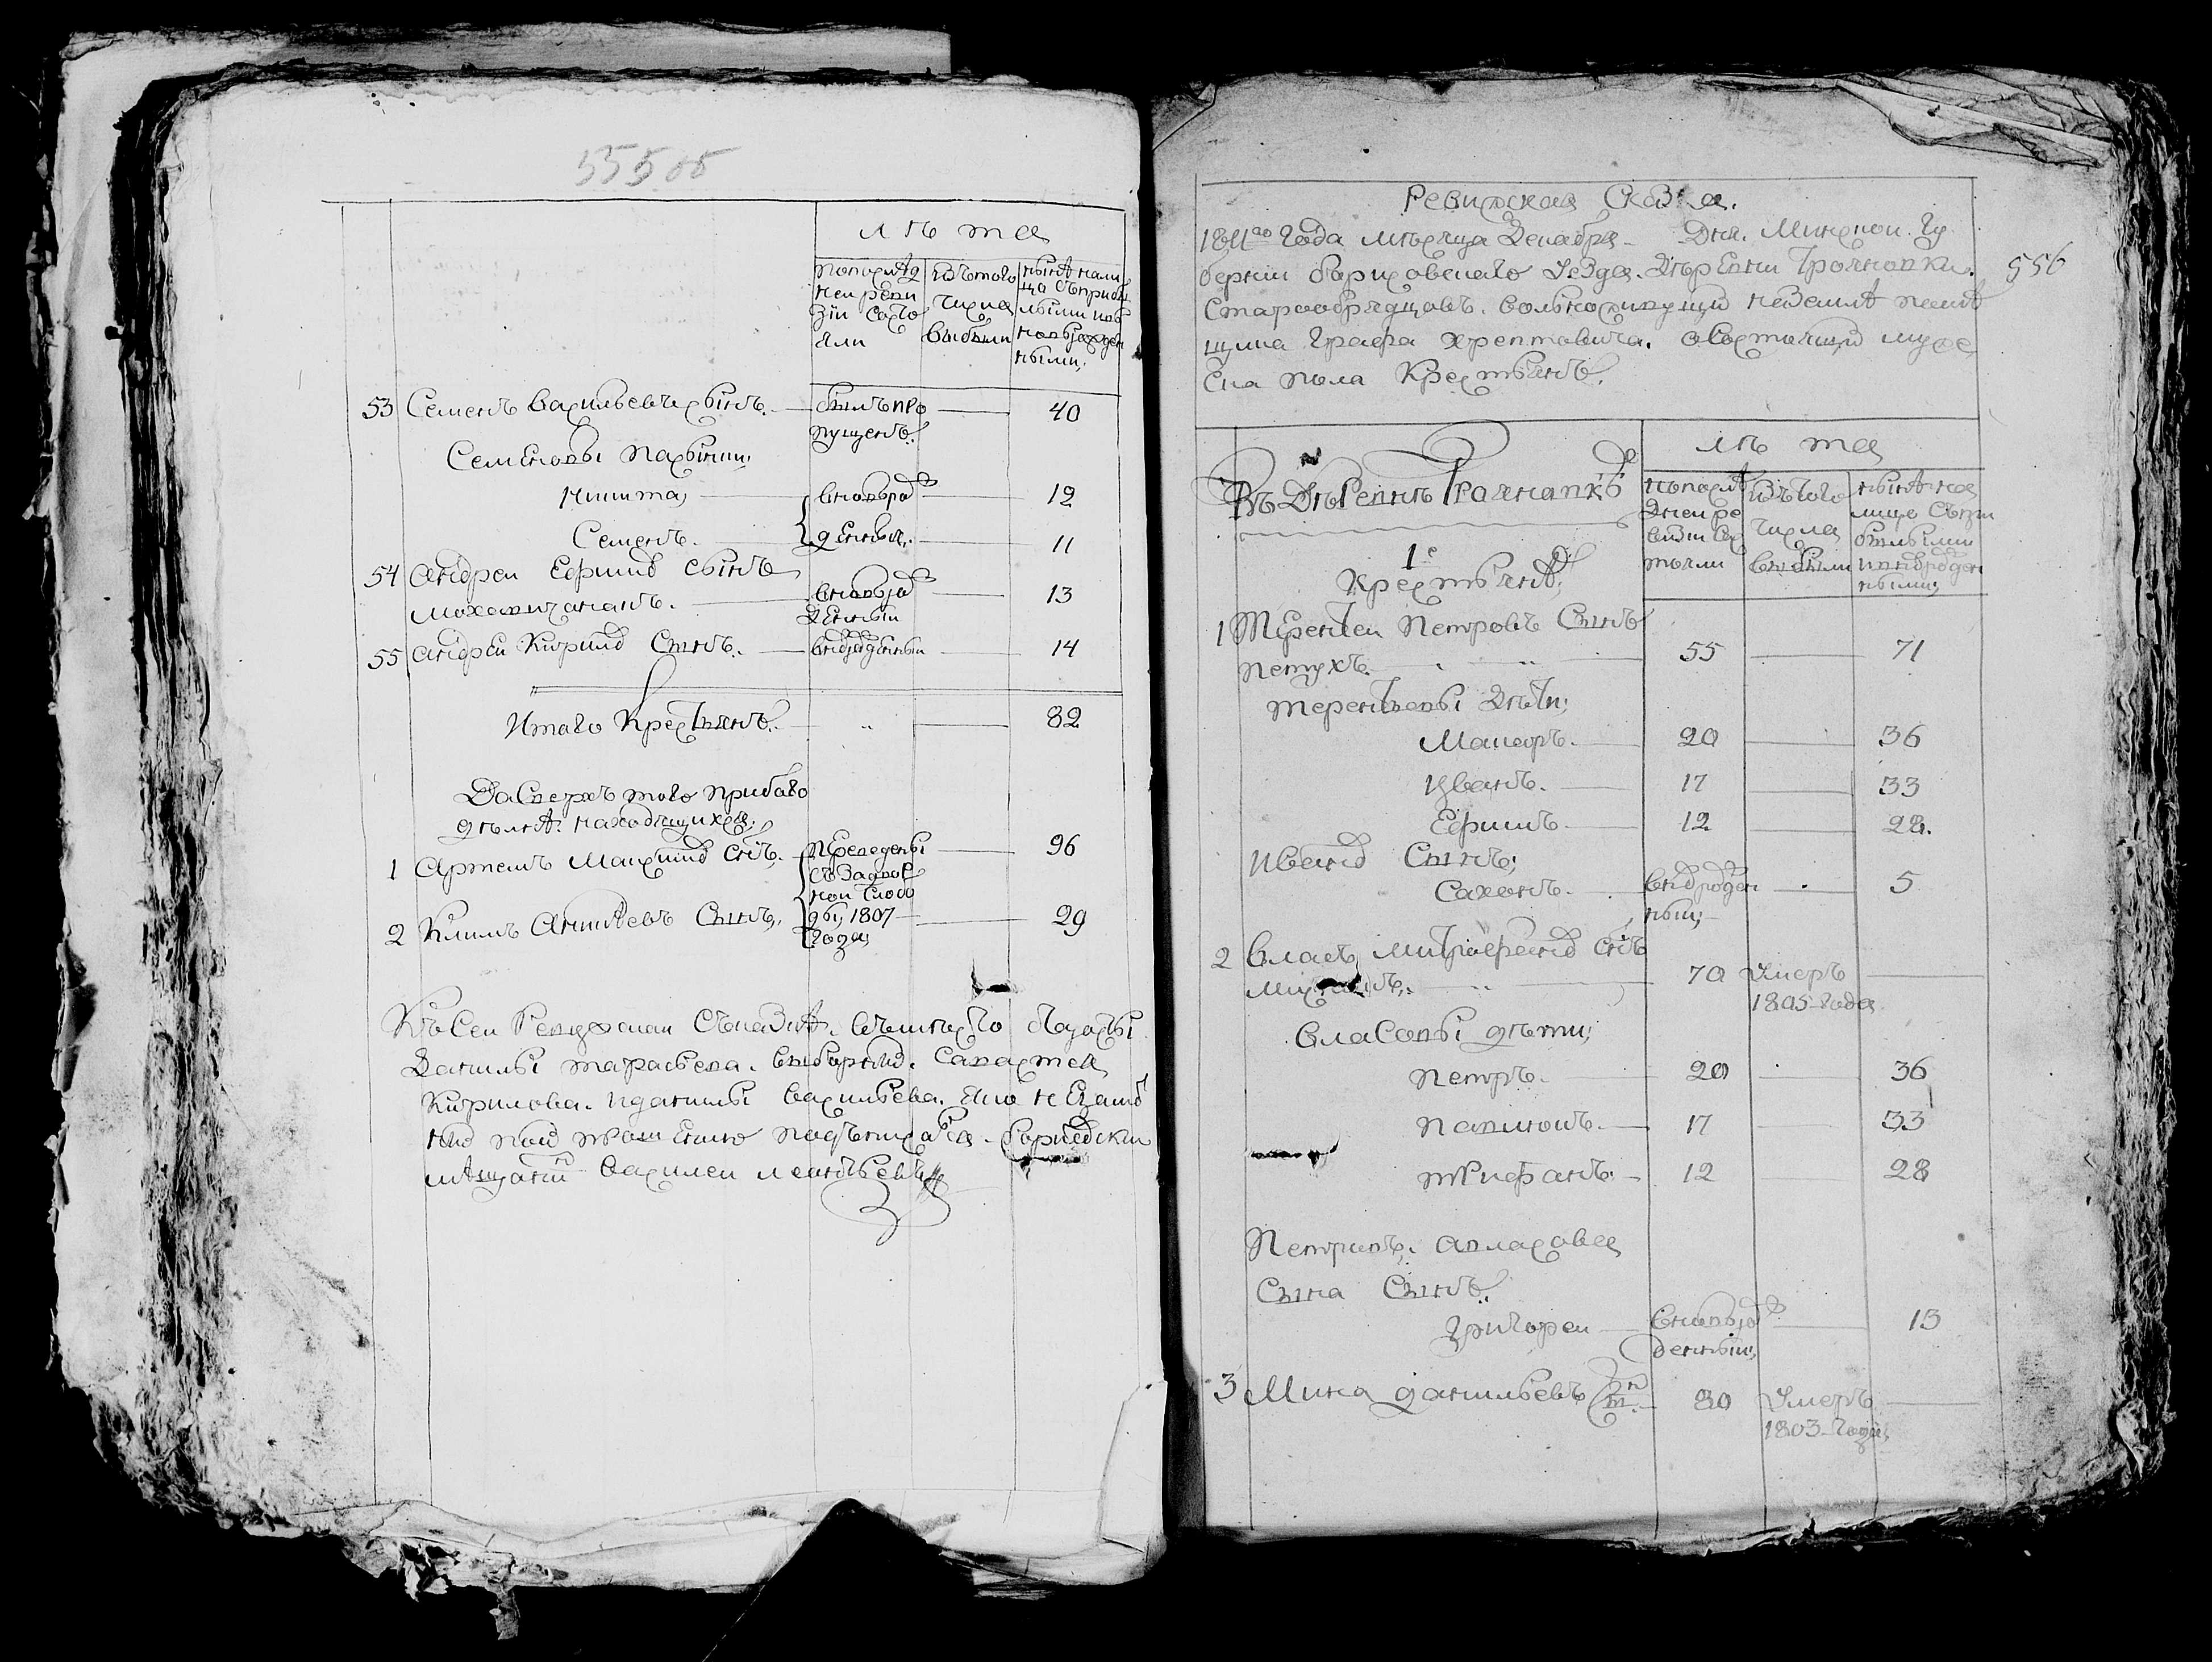 555 об
лѣта
по последней ревизіи состояли
изъ того числа выбыли
нынѣ налицо съ прибылыми и новорожденными
53 Семенъ Васильевъ сынъ. былъ пропущенъ. 40
Семеновы пасынки;
Никита 12
вновьрожденныя
Семенъ. 11
54 Андреи Ефимов сынъ
вновьрожденныи 13
55 Андреи Кирилов Сынъ. вновьрожденныи 14
Итого Крестьянъ. 82
Да Сверхъ того прибаво
дѣлнѣ находящихся;
1 Артемъ Сынъ. 96
переведены съ Задворной Слободы, 1807 года
2 Климъ Сынъ. 29
Къ Сеи Ревизскои Сказкѣ. вмѣсто
Данилы Тарасьева. выборных. Савастея
Кирилова. И Данилы Васильева.
подъписался.
мѣщанин Василеи Леонтьевъ
Ревизская Сказка.
1811го Года Мѣсяца Декабря Дня. Минской Гу
берніи Борисовскаго Уезда. Дѣревни Трояновки.
Старообрядцовъ. вольноживущих на землѣ помѣ
щика Графа Хрептовича. о состоящих муже
ска пола Крестьянъ.
556
Въ Дѣревнѣ Трояновкѣ
лѣта
по последнеи ревизіи состояли
изъ того числа выбыли
нынѣ на лицо съ прибылыми и новорожденными
1е
Крестьянѣ;
1 Терентеи Петровъ Сынъ
Петухъ. 55 71
Терентьевы Дѣти;
Макаръ. 20 36
Иванъ. 17 33
Ефимъ 12 28.
Иванов Сынъ;
Сазонъ. вновьрожденныи; 5
2 Власъ Митрофанов Сынъ
70 Умеръ
1805 Года
Власовы дѣти;
Петръ. 20 36
17 33
Трифанъ. 12 28
Петривъ. Авласовва
Сына Сынъ.
Григореи вновьрожденныи; 13
3 Мина Данильевъ Сын. 80 Умеръ
1803 Года;